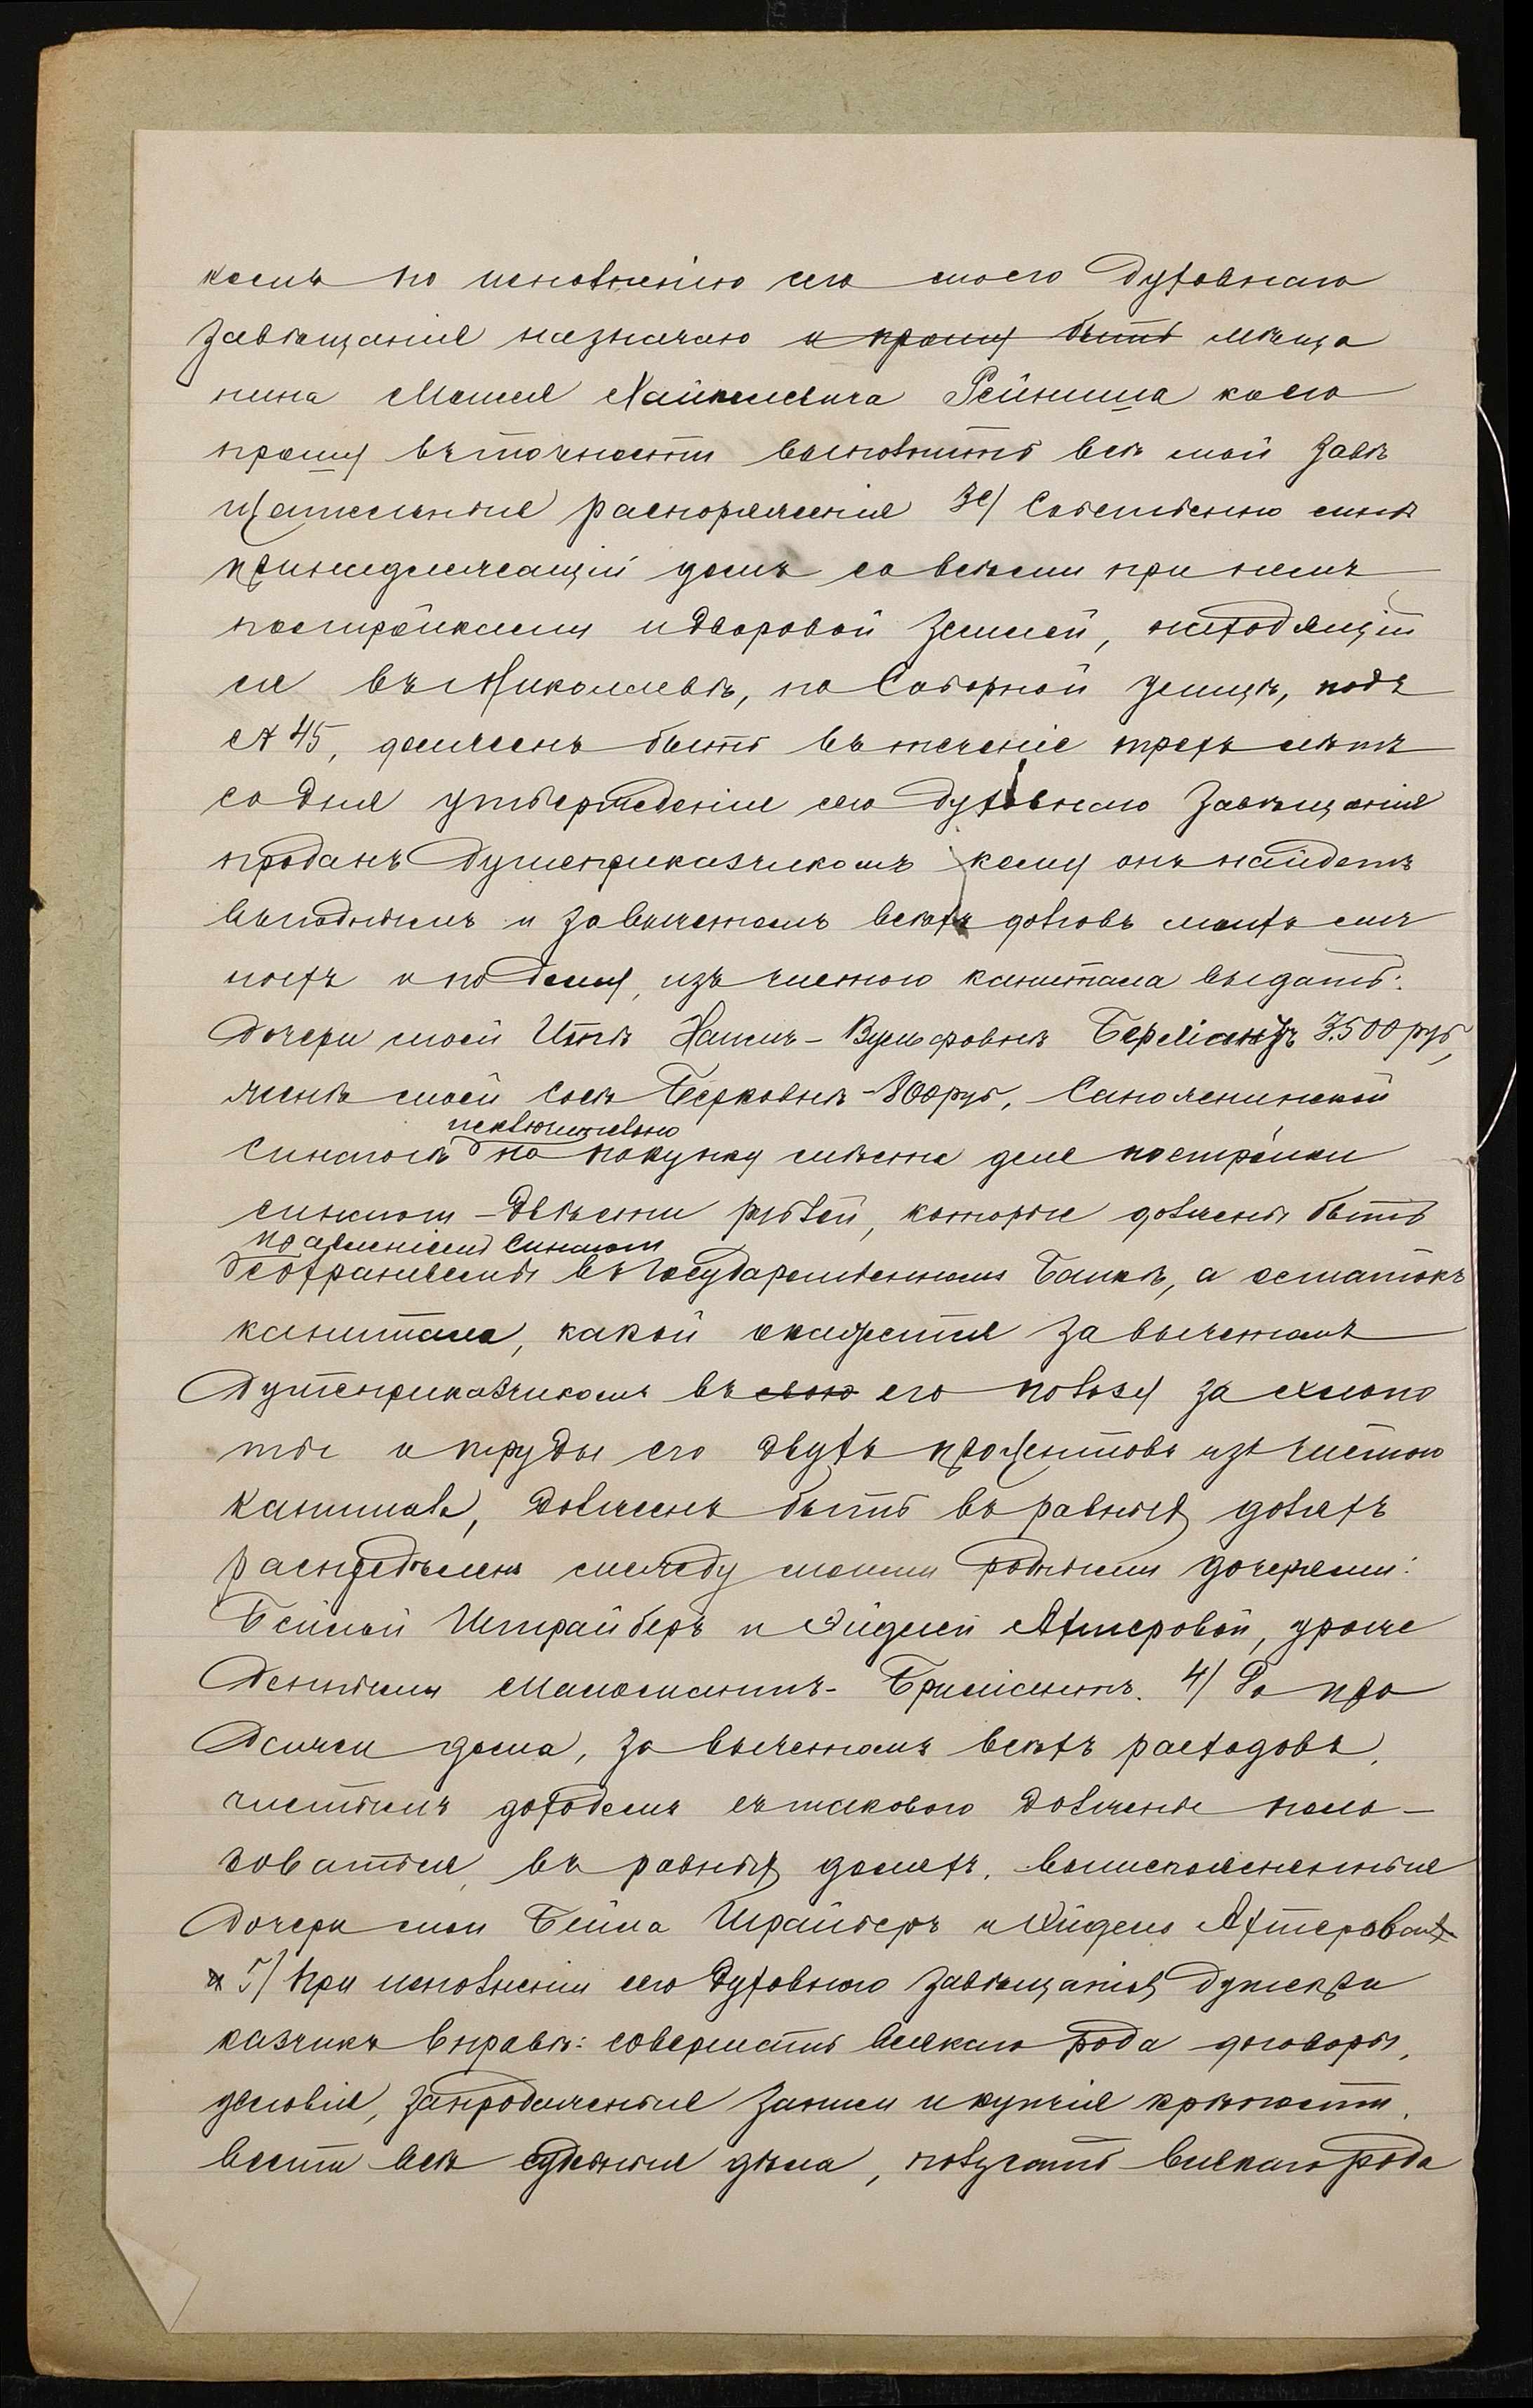 комъ по исполненію сего моего духовнаго
завѣщанія назначаю и прошу быть мѣща
нина Мошея Хаймовича Рейниша коего
прошу въ точности выполнить всѣ мои завѣ
щательныя распоряженія 3е/ Собственно мнѣ
принадлежащій домъ со всѣми при немъ
постройками и дворовой землей, находящій
ся въ Николаевѣ, по Соборной улицѣ, подъ
№ 45, долженъ быть въ теченіе трехъ лѣтъ
со дня утвержденія сего духовнаго завѣщанія
проданъ душеприказчикомъ кому онъ найдетъ
выгоднымъ и за вычетомъ всѣхъ долговъ моихъ
и по сему, изъ чистаго капитала выдать:
дочери моей Итѣ Вульфовнѣ 3.500 руб,
женѣ моей Сосѣ Берковнѣ - 800 руб,
исключительно
Синагогѣ на покупку мѣста для постройки
синагоги - двѣсти рублей, которые должны быть
правленіемъ Синагоги
сохраняемы въ Государственномъ Банкѣ, а остатокъ
капитала, какой окажется за вычетомъ
душеприказчикомъ въ свою его пользу за хлопо
ты и труды его двухъ процентовъ изъ чистаго
капитала, долженъ быть въ равныхъ доляхъ
распредѣленъ между моими родными дочерями:
Бейлой Штрайберъ и Эйдлей Ахтеровой, урож
денными Бриліантъ. 4/ До про
дажи дома, за вычетомъ всѣхъ расходовъ,
чистымъ доходомъ съ таковаго должны поль-
зоваться, въ равныхъ доляхъ, вышепоясненныя
дочери мои Бейла Штрайберъ и Эйдля Ахтерова
5/ При исполненіи сего духовнаго завѣщанія душепри
казчикъ вправѣ: совершать всякаго рода договоры,
условія, запродажныя записи и купчія крѣпости,
вести всѣ судебныя дѣла, получать всякаго рода